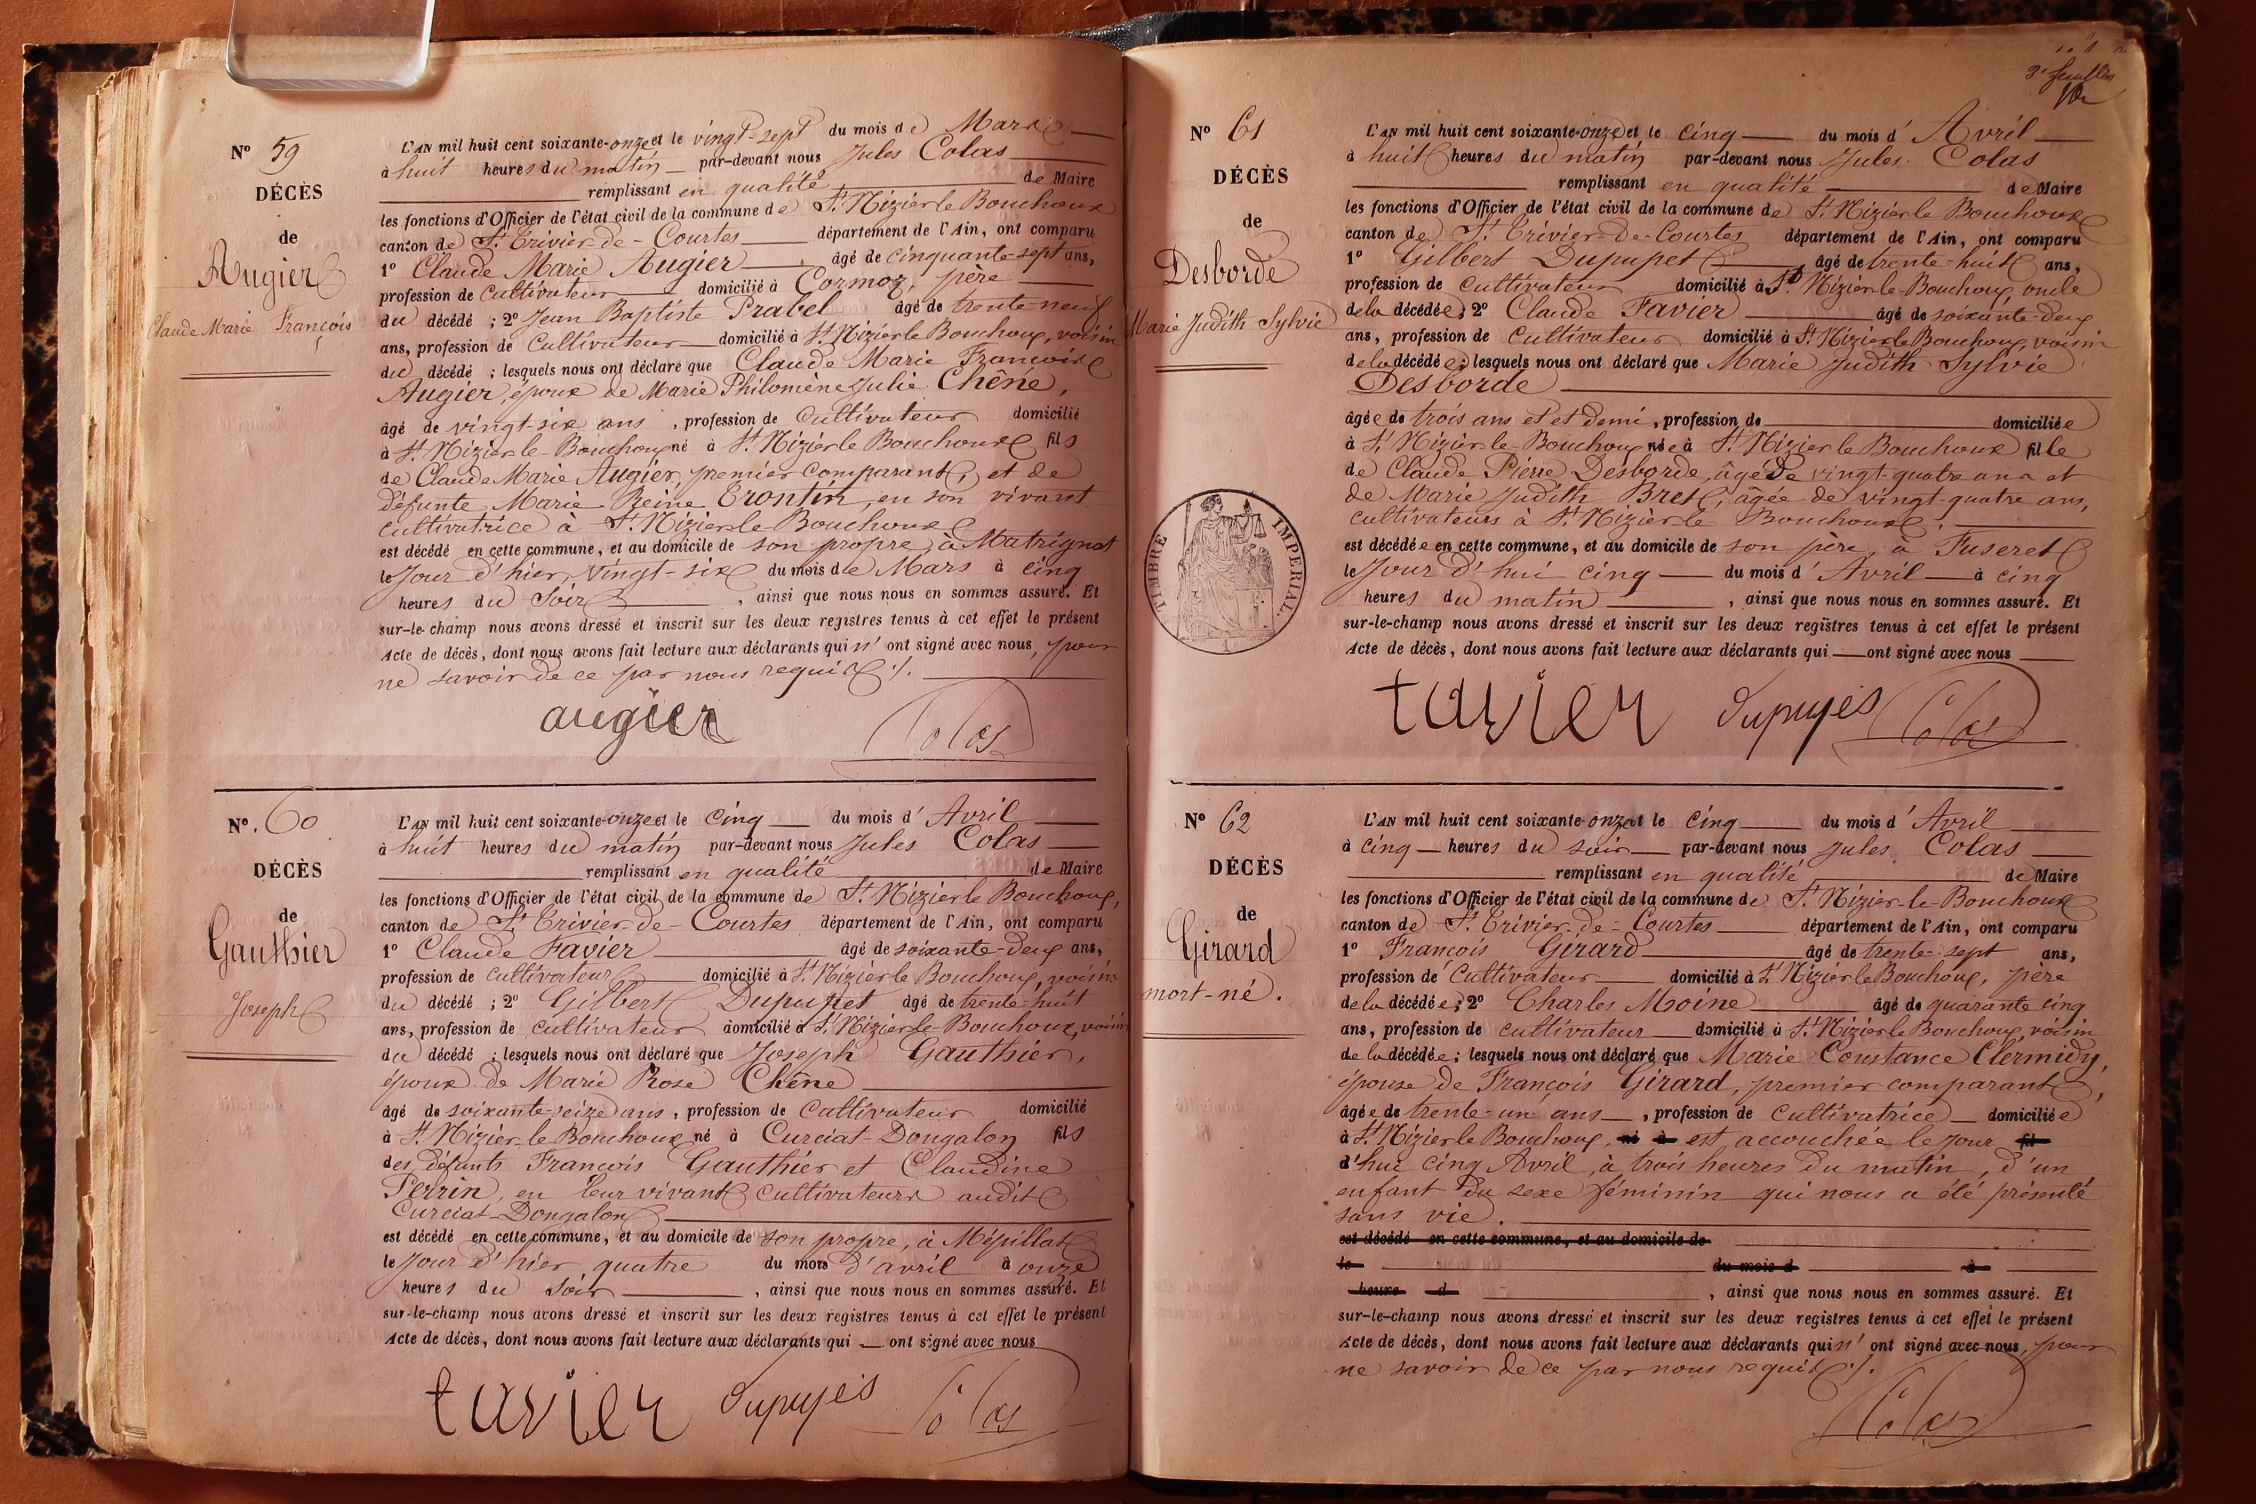 N° 59
DÉCÈS
de
Augier
Claude Marie François
L'AN mil huit cent soixante-onze et le vingt-sept du mois de Mars
à huit heures du matin par-devant nous Jules Colas
remplissant en qualité de Maire
les fonctions d'Officier de l'état civil de la commune de St Nizier le Bouchoux
canton de St Trivier-de-Courtes département de l'Ain, ont comparu
1° Claude Marie Augier âgé de cinquante-sept ans,
profession de cultivateur domicilié à Cormoz, père
du décédé ; 2° Jean Baptiste Prabel âgé de trente-neuf
ans, profession de cultivateur domicilié à St Nizier le Bouchoux, voisin
du décédé ; lesquels nous ont déclaré que Claude Marie François
Augier, époux de Marie Philomène Julie Chêne,
âgé de vingt-six ans, profession de cultivateur domicilié
à St Nizier-le-Bouchoux né à St Nizier le Bouchoux fils
de Claude Marie Augier, premier comparant, et de
défunte Marie Reine Trontin, en son vivant
cultivatrice à St Nizier le Bouchoux
est décédé en cette commune, et au domicile de son propre, à Matrignat
le Jour d'hier, vingt-six du mois de Mars à cinq
heures du Soir, ainsi que nous nous en sommes assuré. Et
sur-le-champ nous avons dressé et inscrit sur les deux registres tenus à cet effet le présent
Acte de décès, dont nous avons fait lecture aux déclarants qui n'ont signé avec nous, pour
ne savoir de ce par nous requis ./.
augier Colas
N° 60
DÉCÈS
de
Gauthier
Joseph
L'AN mil huit cent soixante-onze et le cinq du mois d'Avril
à huit heures du matin par-devant nous Jules Colas
remplissant en qualité de Maire
les fonctions d'Officier de l'état civil de la commune de St Nizier le Bouchoux,
canton de St Trivier-de-Courtes département de l'Ain, ont comparu
1° Claude Favier âgé de soixante-deux ans,
profession de cultivateur domicilié à St Nizier le Bouchoux, voisin
du décédé ; 2° Gilbert Dupupet âgé de trente-huit
ans, profession de cultivateur domicilié à St Nizier-le-Bouchoux, voisin
du décédé ; lesquels nous ont déclaré que Joseph Gauthier,
époux de Marie Rose Chêne
âgé de soixante-seize ans, profession de cultivateur domicilié
à St Nizier-le-Bouchoux né à Curciat-Dongalon fils
des défunts François Gauthier et Claudine
Perrin, en leur vivant cultivateurs audit
Curciat-Dongalon
est décédé en cette commune, et au domicile de son propre, à Mépillat
le Jour d'hier quatre du mois d'avril à onze
heures du Soir, ainsi que nous nous en sommes assuré. Et
sur-le-champ nous avons dressé et inscrit sur les deux registres tenus à cet effet le présent
Acte de décès, dont nous avons fait lecture aux déclarants qui ont signé avec nous
favier Dupupet Colas
N° 61
DÉCÈS
de
Desborde
Marie Judith Sylvie
TIMBRE IMPÉRIAL.
L'AN mil huit cent soixante-onze et le cinq du mois d'Avril
à huit heures du matin par-devant nous Jules Colas
remplissant en qualité de Maire
les fonctions d'Officier de l'état civil de la commune de St Nizier le Bouchoux
canton de St Trivier-de-Courtes département de l'Ain, ont comparu
1° Gilbert Dupupet âgé de trente-huit ans,
profession de cultivateur domicilié à St Nizier-le-Bouchoux, oncle
de la décédée ; 2° Claude Favier âgé de soixante-deux
ans, profession de cultivateur domicilié à St Nizier le Bouchoux, voisin
de la décédée ; lesquels nous ont déclaré que Marie Judith Sylvie
Desborde
âgée de trois ans et et demi, profession de domiciliée
à St Nizier-le-Bouchoux née à St Nizier le Bouchoux fille
de Claude Pierre Desborde, âgé de vingt-quatre ans et
de Marie Judith Bret, âgée de vingt-quatre ans,
cultivateurs à St Nizier le Bouchoux.
est décédée en cette commune, et au domicile de son père, à Fuseret
le Jour d'hui cinq du mois d'Avril à cinq
heures du matin, ainsi que nous nous en sommes assuré. Et
sur-le-champ nous avons dressé et inscrit sur les deux registres tenus à cet effet le présent
Acte de décès, dont nous avons fait lecture aux déclarants qui ont signé avec nous
favier Dupupet Colas
N° 62
DÉCÈS
de
Girard
mort-né.
L'AN mil huit cent soixante-onze et le cinq du mois d'Avril
à cinq heures du soir par-devant nous Jules Colas
remplissant en qualité de Maire
les fonctions d'Officier de l'état civil de la commune de St Nizier-le-Bouchoux
canton de St Trivier-de-Courtes département de l'Ain, ont comparu
1° François Girard âgé de trente-sept ans,
profession de Cultivateur domicilié à St Nizier le Bouchoux, père
de la décédée ; 2° Charles Moine âgé de quarante cinq
ans, profession de cultivateur domicilié à St Nizier le Bouchoux, voisin
de la décédée ; lesquels nous ont déclaré que Marie Constance Clermidy,
épouse de François Girard, premier comparant,
âgée de trente-un ans, profession de cultivatrice domiciliée
à St Nizier le Bouchoux, né à est accouchée le Jour fil
d'hui cinq Avril, à trois heures du matin, d'un
enfant du sexe féminin qui nous a été présenté
sans vie.
est décédé en cette commune, et au domicile de
le du mois d à
heure d, ainsi que nous nous en sommes assuré. Et
sur-le-champ nous avons dressé et inscrit sur les deux registres tenus à cet effet le présent
Acte de décès, dont nous avons fait lecture aux déclarants qui n'ont signé avec nous, pour
ne savoir de ce par nous requis ./.
Colas